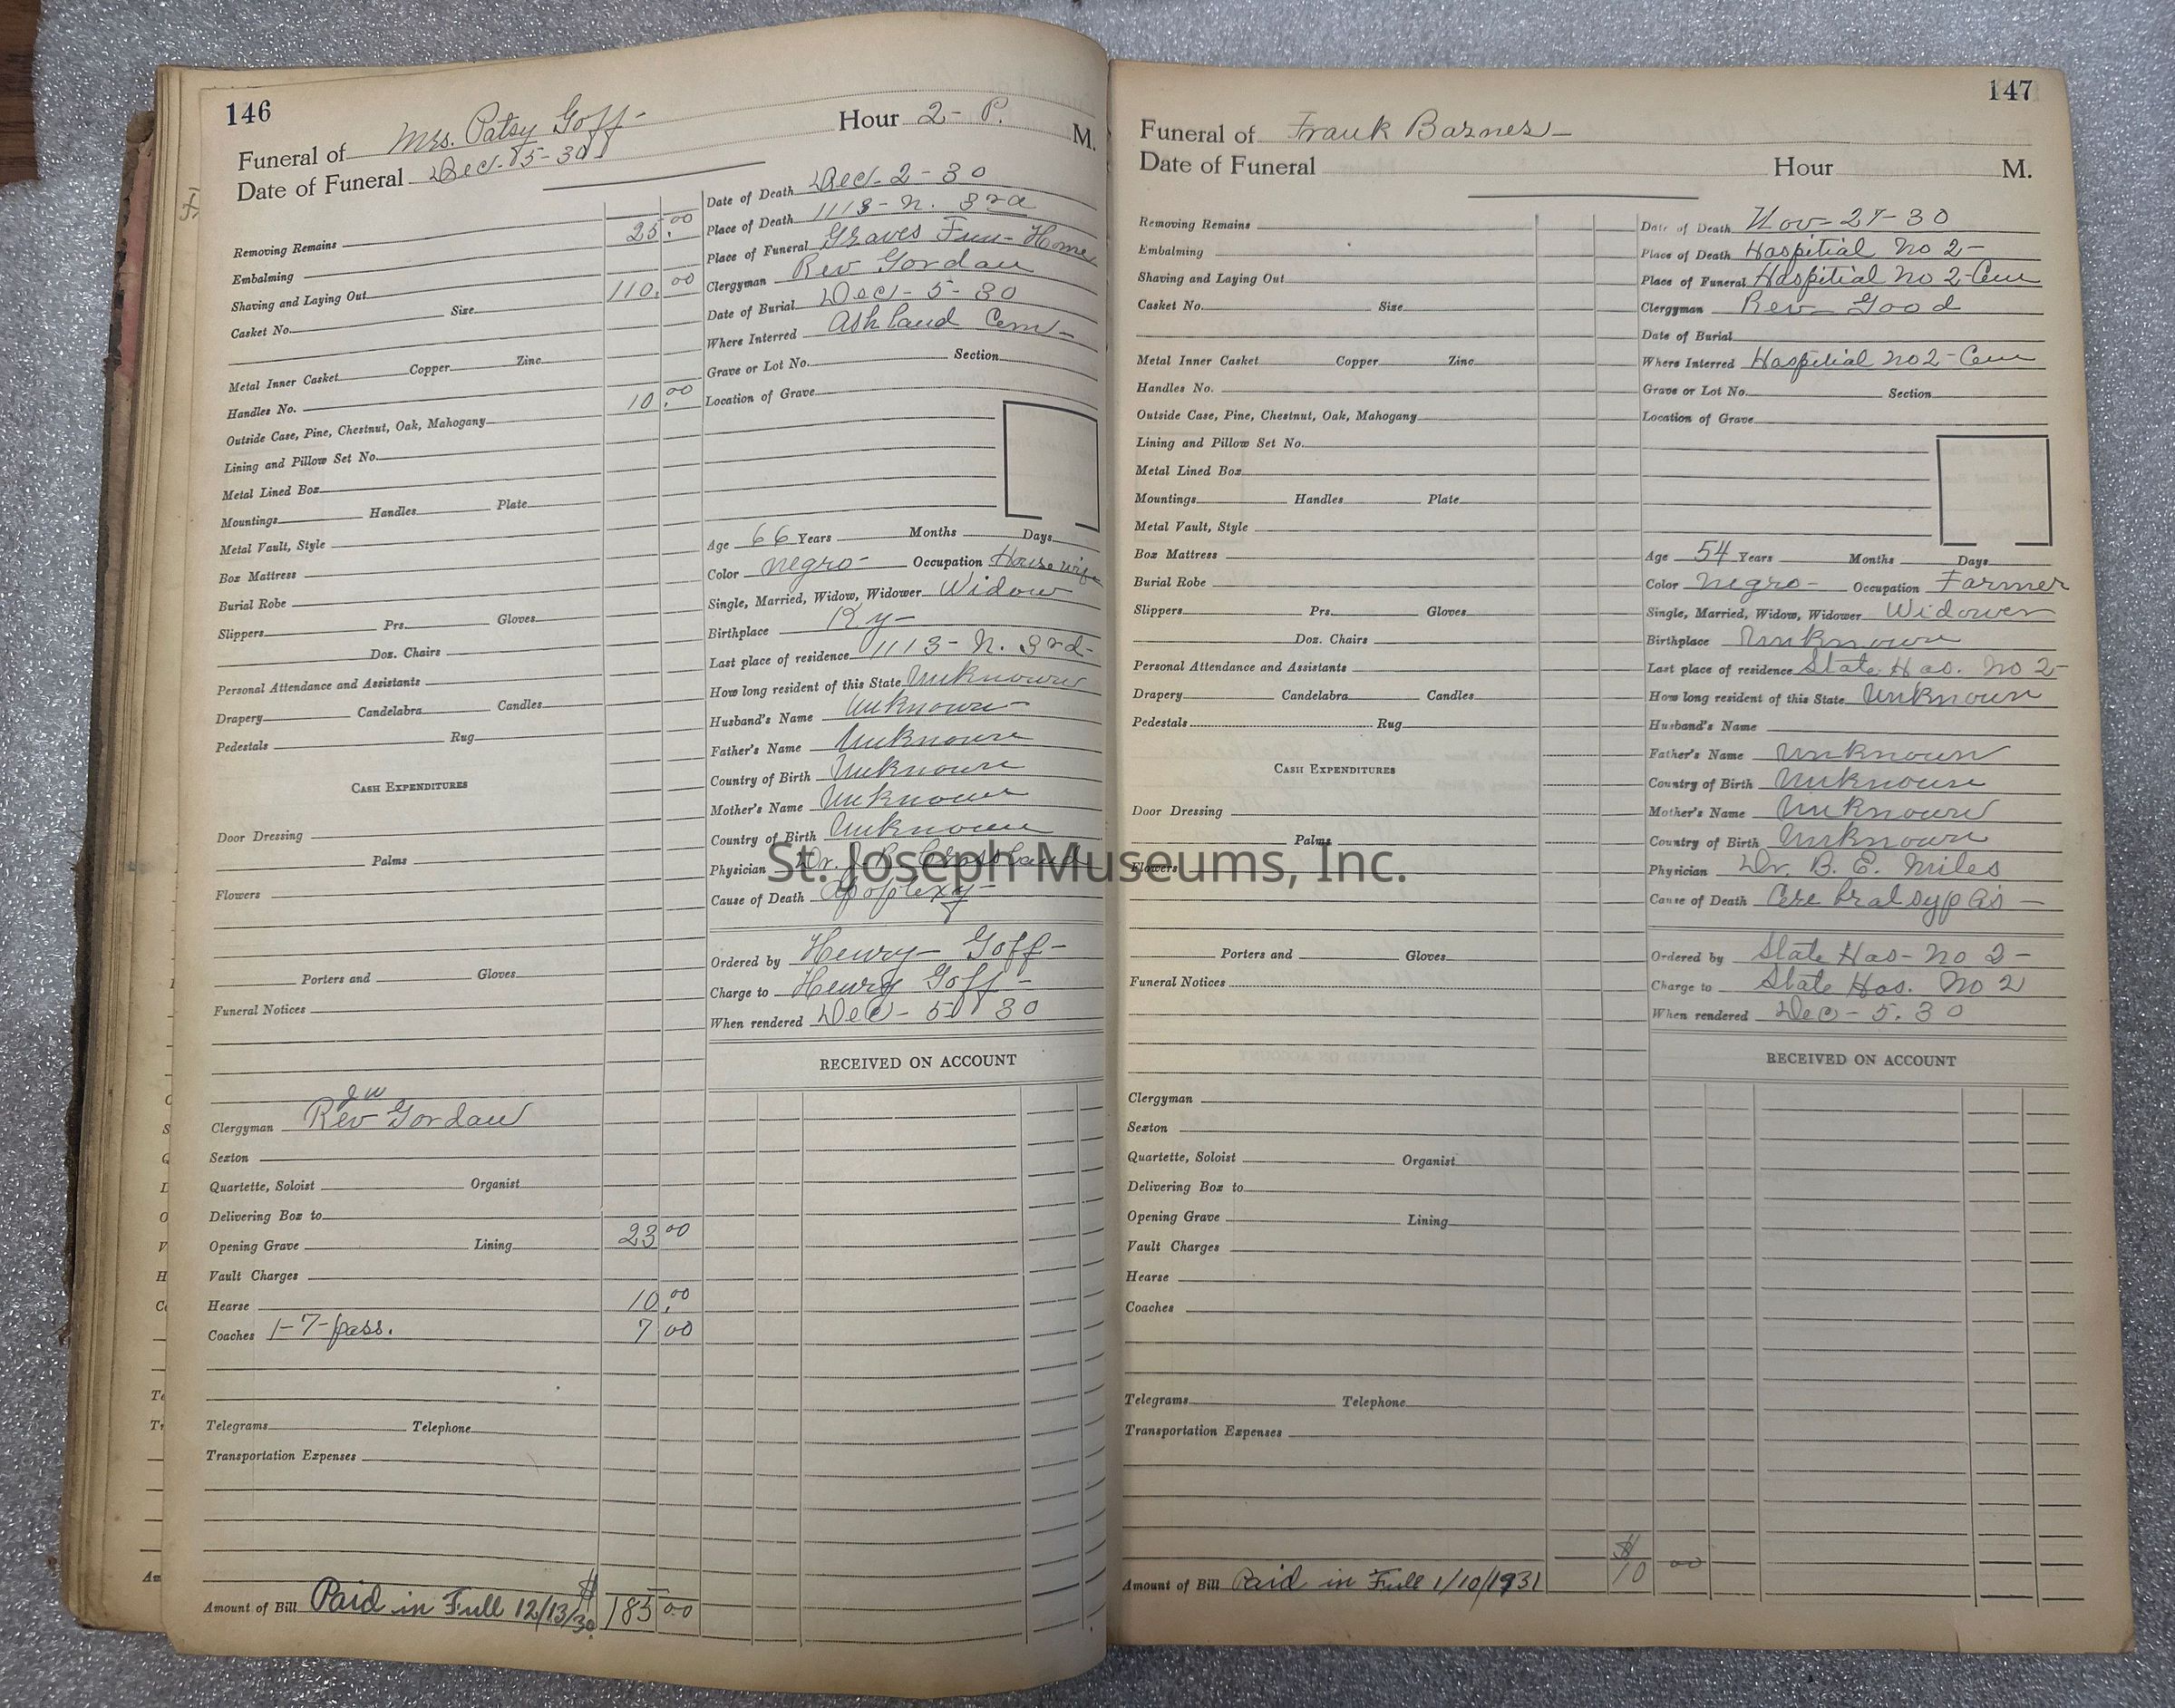 146
Funeral of Mrs. Patsy Goff- Hour 2- P. M.
Date of Funeral Dec. 5-30
Removing Remains 25.00
Embalming
Shaving and Laying Out 110.00
Casket No. Size
Metal Inner Casket Copper Zinc
Handles No. 10.00
Outside Case, Pine, Chestnut, Oak, Mahogany
Lining and Pillow Set No.
Metal Lined Box
Mountings Handles Plate
Metal Vault, Style
Box Mattress
Burial Robe
Slippers Prs. Gloves
Doz. Chairs
Personal Attendance and Assistants
Drapery Candelabra Candles
Pedestals Rug
CASH EXPENDITURES
Door Dressing
Palms
Flowers
Porters and Gloves
Funeral Notices
JW
Clergyman Rev Gordan
Sexton
Quartette, Soloist Organist
Delivering Box to
Opening Grave Lining 23 00
Vault Charges
Hearse 10.00
Coaches 1-7-pass. 7 00
Telegrams Telephone
Transportation Expenses
Amount of Bill Paid in Full 12/13/30. $185 00
Date of Death Dec-2-30
Place of Death 1113-N. 3rd
Place of Funeral Graves Fun-Home
Clergyman Rev Gordan
Date of Burial Dec-5-30
Where Interred Ashland Cem-
Grave or Lot No. Section
Location of Grave
Age 66 Years Months Days
Color negro- Occupation Housewife
Single, Married, Widow, Widower Widow
Birthplace Ky-
Last place of residence 1113-N. 3rd-
How long resident of this State Unknown
Husband's Name Unknown-
Father's Name Unknown
Country of Birth Unknown
Mother's Name Unknown
Country of Birth Unknown
Physician Dr.
Cause of Death Apoplexy-
Ordered by Henry- Goff-
Charge to Henry Goff-
When rendered Dec-5-30
RECEIVED ON ACCOUNT
147
Funeral of Frank Barnes-
Date of Funeral Hour M.
Removing Remains
Embalming
Shaving and Laying Out
Casket No. Size
Metal Inner Casket Copper Zinc
Handles No.
Outside Case, Pine, Chestnut, Oak, Mahogany
Lining and Pillow Set No.
Metal Lined Box
Mountings Handles Plate
Metal Vault, Style
Box Mattress
Burial Robe
Slippers Prs. Gloves
Doz. Chairs
Personal Attendance and Assistants
Drapery Candelabra Candles
Pedestals Rug
CASH EXPENDITURES
Door Dressing
Palms
Flowers
Porters and Gloves
Funeral Notices
Clergyman
Sexton
Quartette, Soloist Organist
Delivering Box to
Opening Grave Lining
Vault Charges
Hearse
Coaches
Telegrams Telephone
Transportation Expenses
Amount of Bill Paid in Full 1/10/1931 $10 00
Date of Death Nov-27-30
Place of Death Haspitial No 2-
Place of Funeral Haspitial No 2-Cem
Clergyman Rev- Good
Date of Burial
Where Interred Haspitial No2-Cem
Grave or Lot No. Section
Location of Grave
Age 54 Years Months Days
Color negro- Occupation Farmer
Single, Married, Widow, Widower Widower
Birthplace Unknown
Last place of residence State Hos. No 2-
How long resident of this State Unknown
Husband's Name
Father's Name Unknown
Country of Birth Unknown
Mother's Name Unknown
Country of Birth Unknown
Physician Dr. B. E. Miles
Cause of Death
Ordered by State Hos-No 2-
Charge to State Hos. No 2
When rendered Dec-5.30
RECEIVED ON ACCOUNT
St. Joseph Museums, Inc.